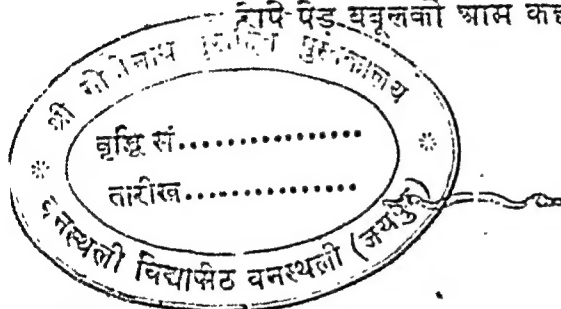 रोपे पेड़ बबूलको आम कह
श्री
पुस्तकालय
वृद्धि सं................
तारीख................
वनस्थली विद्यापीठ वनस्थली (जयपुर)